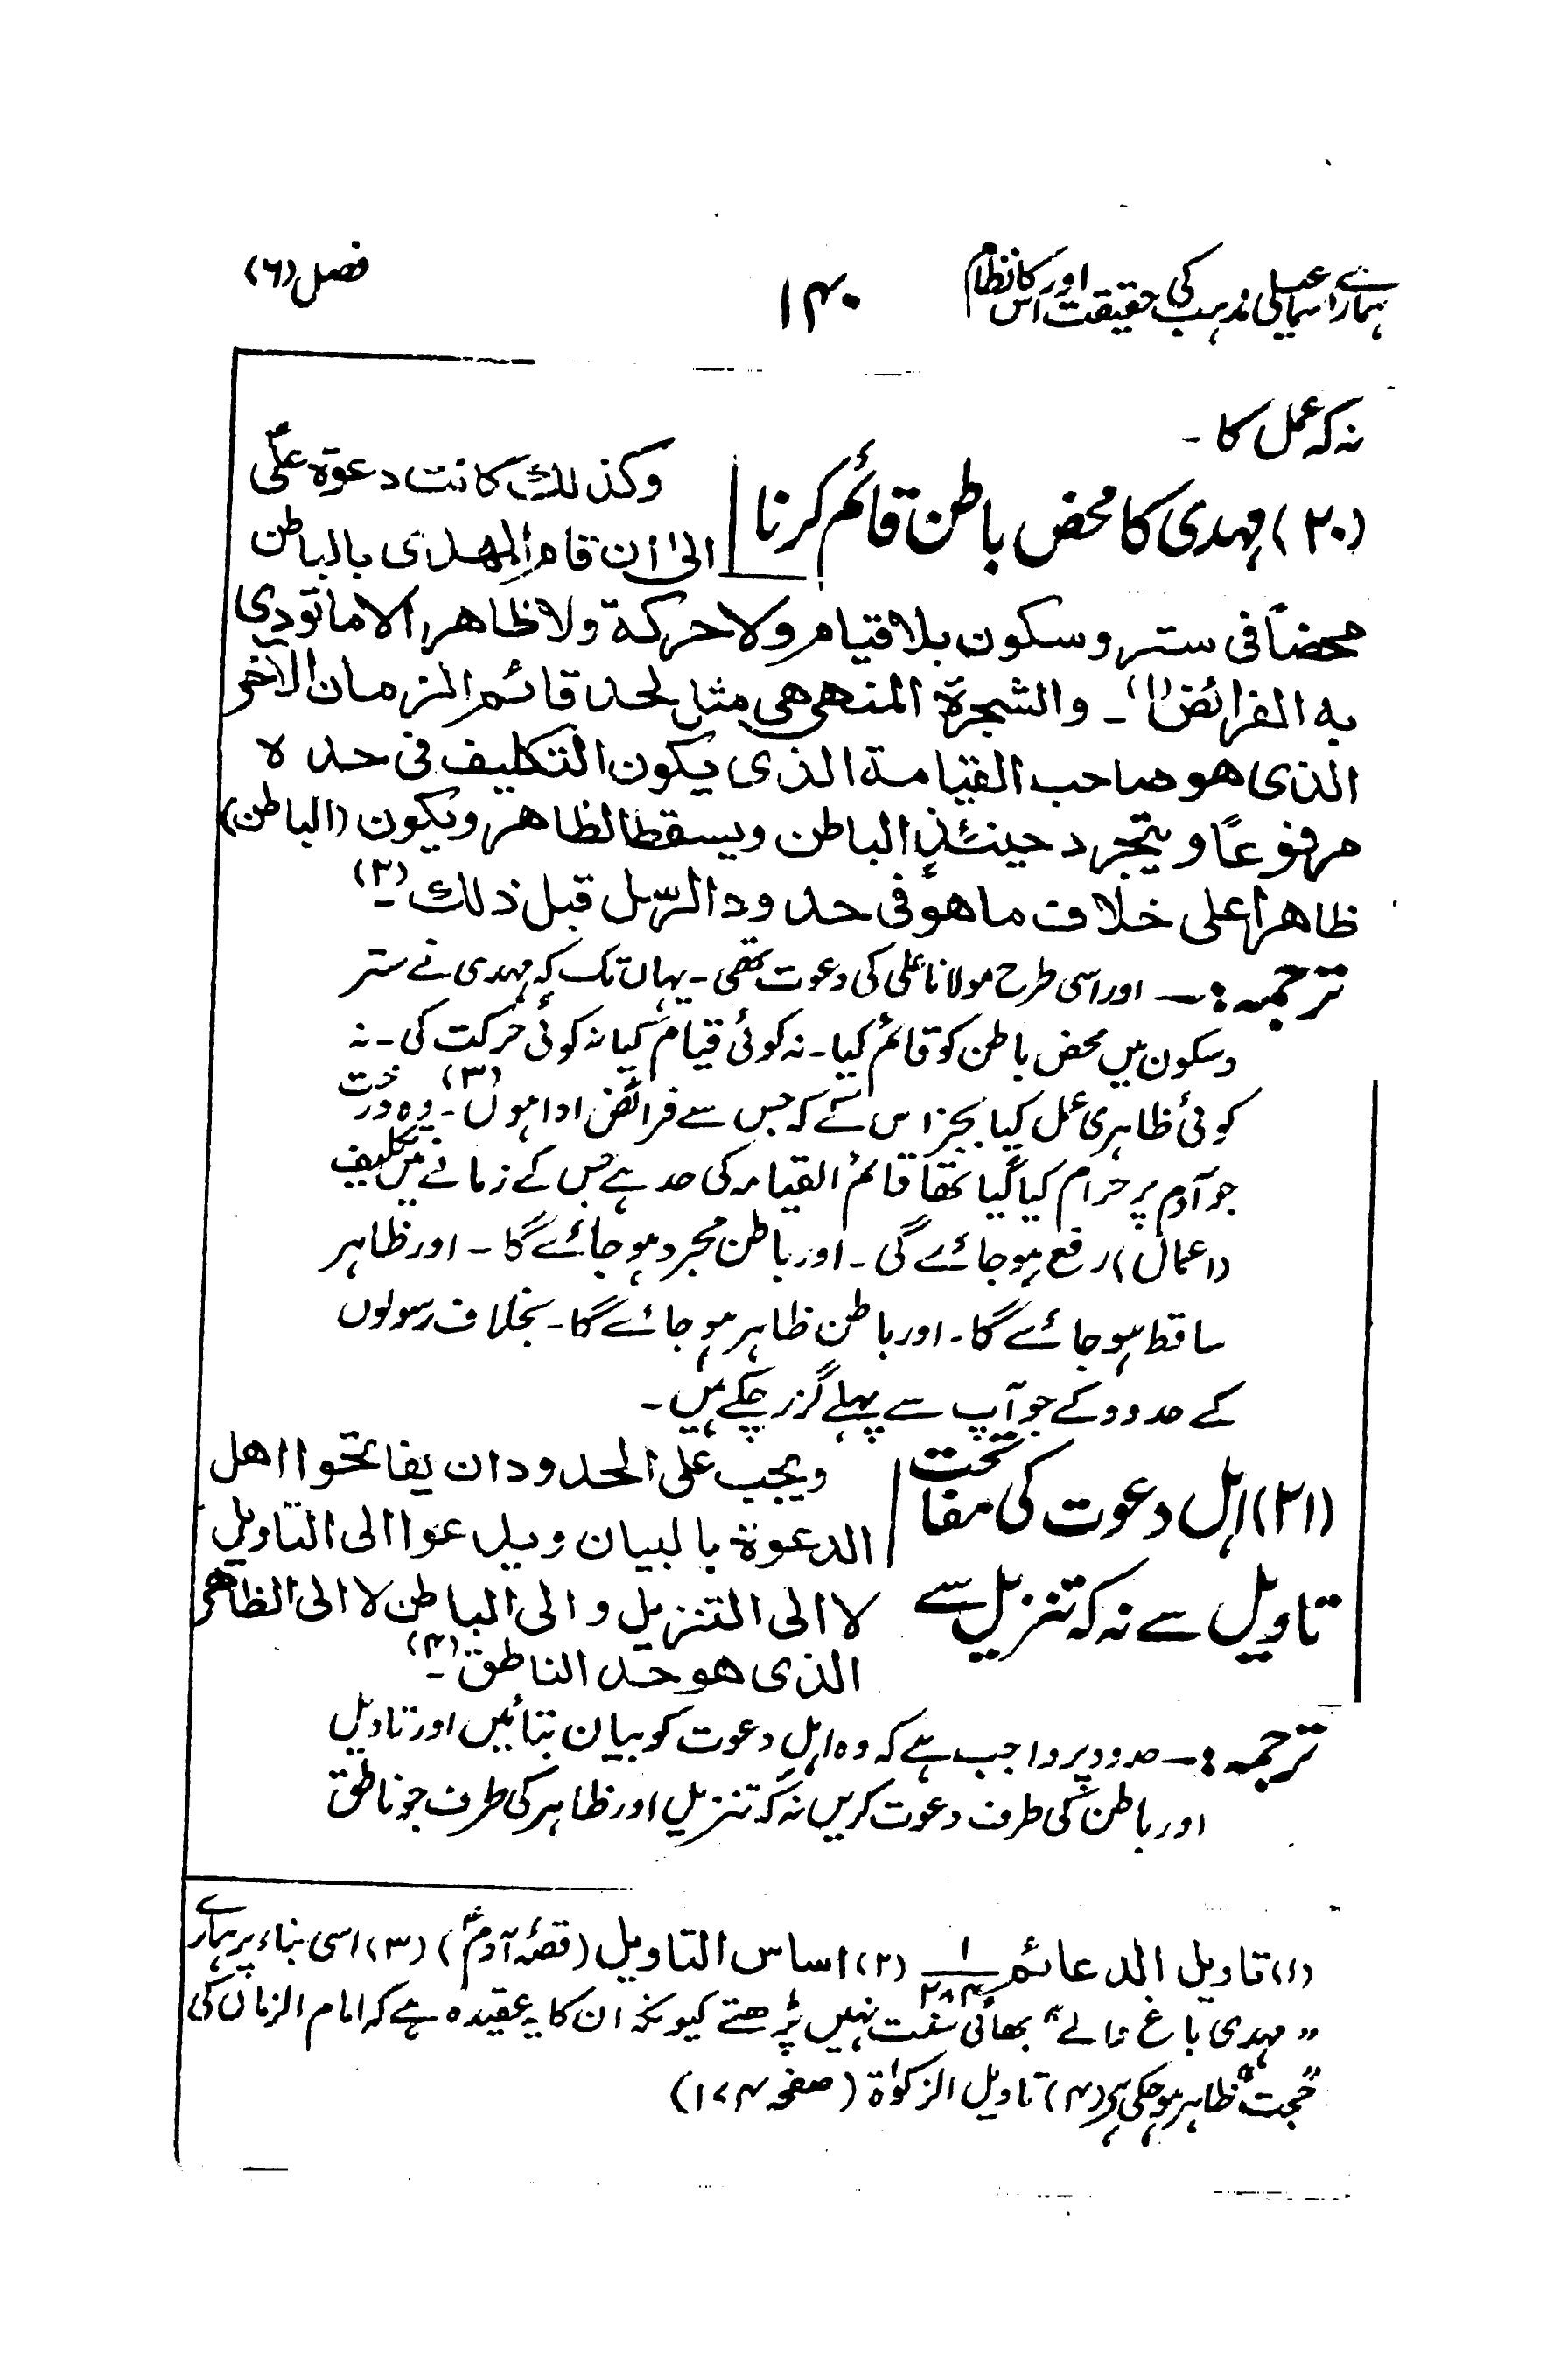 ہمارے اسماعیلی مذہب کی حقیقت اور اس کا نظام ۱۴۰ فصل (۶)
نہ کہ عمل کا۔
(۲۰) مہدی کا محض باطن قائم کرنا
وكذلك كانت دعوة علیؑ
الیٰ ان قام المهدی بالباطن
محضاً فی ستر وسكون بلا قیام ولا حركة ولا ظاهر الا ما تودی
به الفرائض(۱)۔ والشجرة المنهی هی مثل لحد قائم الزمان الاٰخر
الذی هو صاحب القیامة الذی یكون التكلیف فی حده
مرفوعًا ویتجرد حینئذٍ الباطن ویسقط الظاهر ویكون (الباطن)
ظاهراً علی خلاف ما هو فی حدود الرسل قبل ذلك(۲)۔
ترجمہ :۔ اور اسی طرح مولانا علی کی دعوت تھی۔ یہاں تک کہ مہدی نے ستر
و سکون میں محض باطن کو قائم کیا۔ نہ کوئی قیام کیا نہ کوئی حرکت کی۔ نہ
کوئی ظاہری عمل کیا بجز اس کے کہ جس سے فرائض ادا ہوں(۳)۔ وہ درخت
جو آدم پر حرام کیا گیا تھا قائم القیامہ کی حد ہے جس کے زمانے میں تکلیف
(اعمال) رفع ہو جائے گی۔ اور باطن مجرد ہو جائے گا۔ اور ظاہر
ساقط ہو جائے گا۔ اور باطن ظاہر ہو جائے گا۔ بخلاف رسولوں
کے حدود کے جو آپ سے پہلے گزر چکے ہیں۔
(۲۱) اہل دعوت کی مفاتحت
تاویل سے نہ کہ تنزیل سے
ویجب علی الحدود ان یفاتحوا اهل
الدعوة بالبیان ویدعوا الی التاویل
لا الی التنزیل والی الباطن لا الی الظاهر
الذی هو حد الناطق(۴)۔
ترجمہ :۔ حدود پر واجب ہے کہ وہ اہل دعوت کو بیان بتائیں اور تاویل
اور باطن کی طرف دعوت کریں نہ کہ تنزیل اور ظاہر کی طرف جو ناطق
(۱) تاویل الدعائم ۱/۲۸۴ (۲) اساس التاویل (قصۂ آدمؑ) (۳) اسی بناء پر ہمارے
"مہدی باغ والے" بھائی سنت نہیں پڑھتے کیونکہ ان کا یہ عقیدہ ہے کہ امام الزمان کی
"حجت" ظاہر ہو چکی ہے (۴) تاویل الزکوٰۃ (صفحہ ۱۷۴)